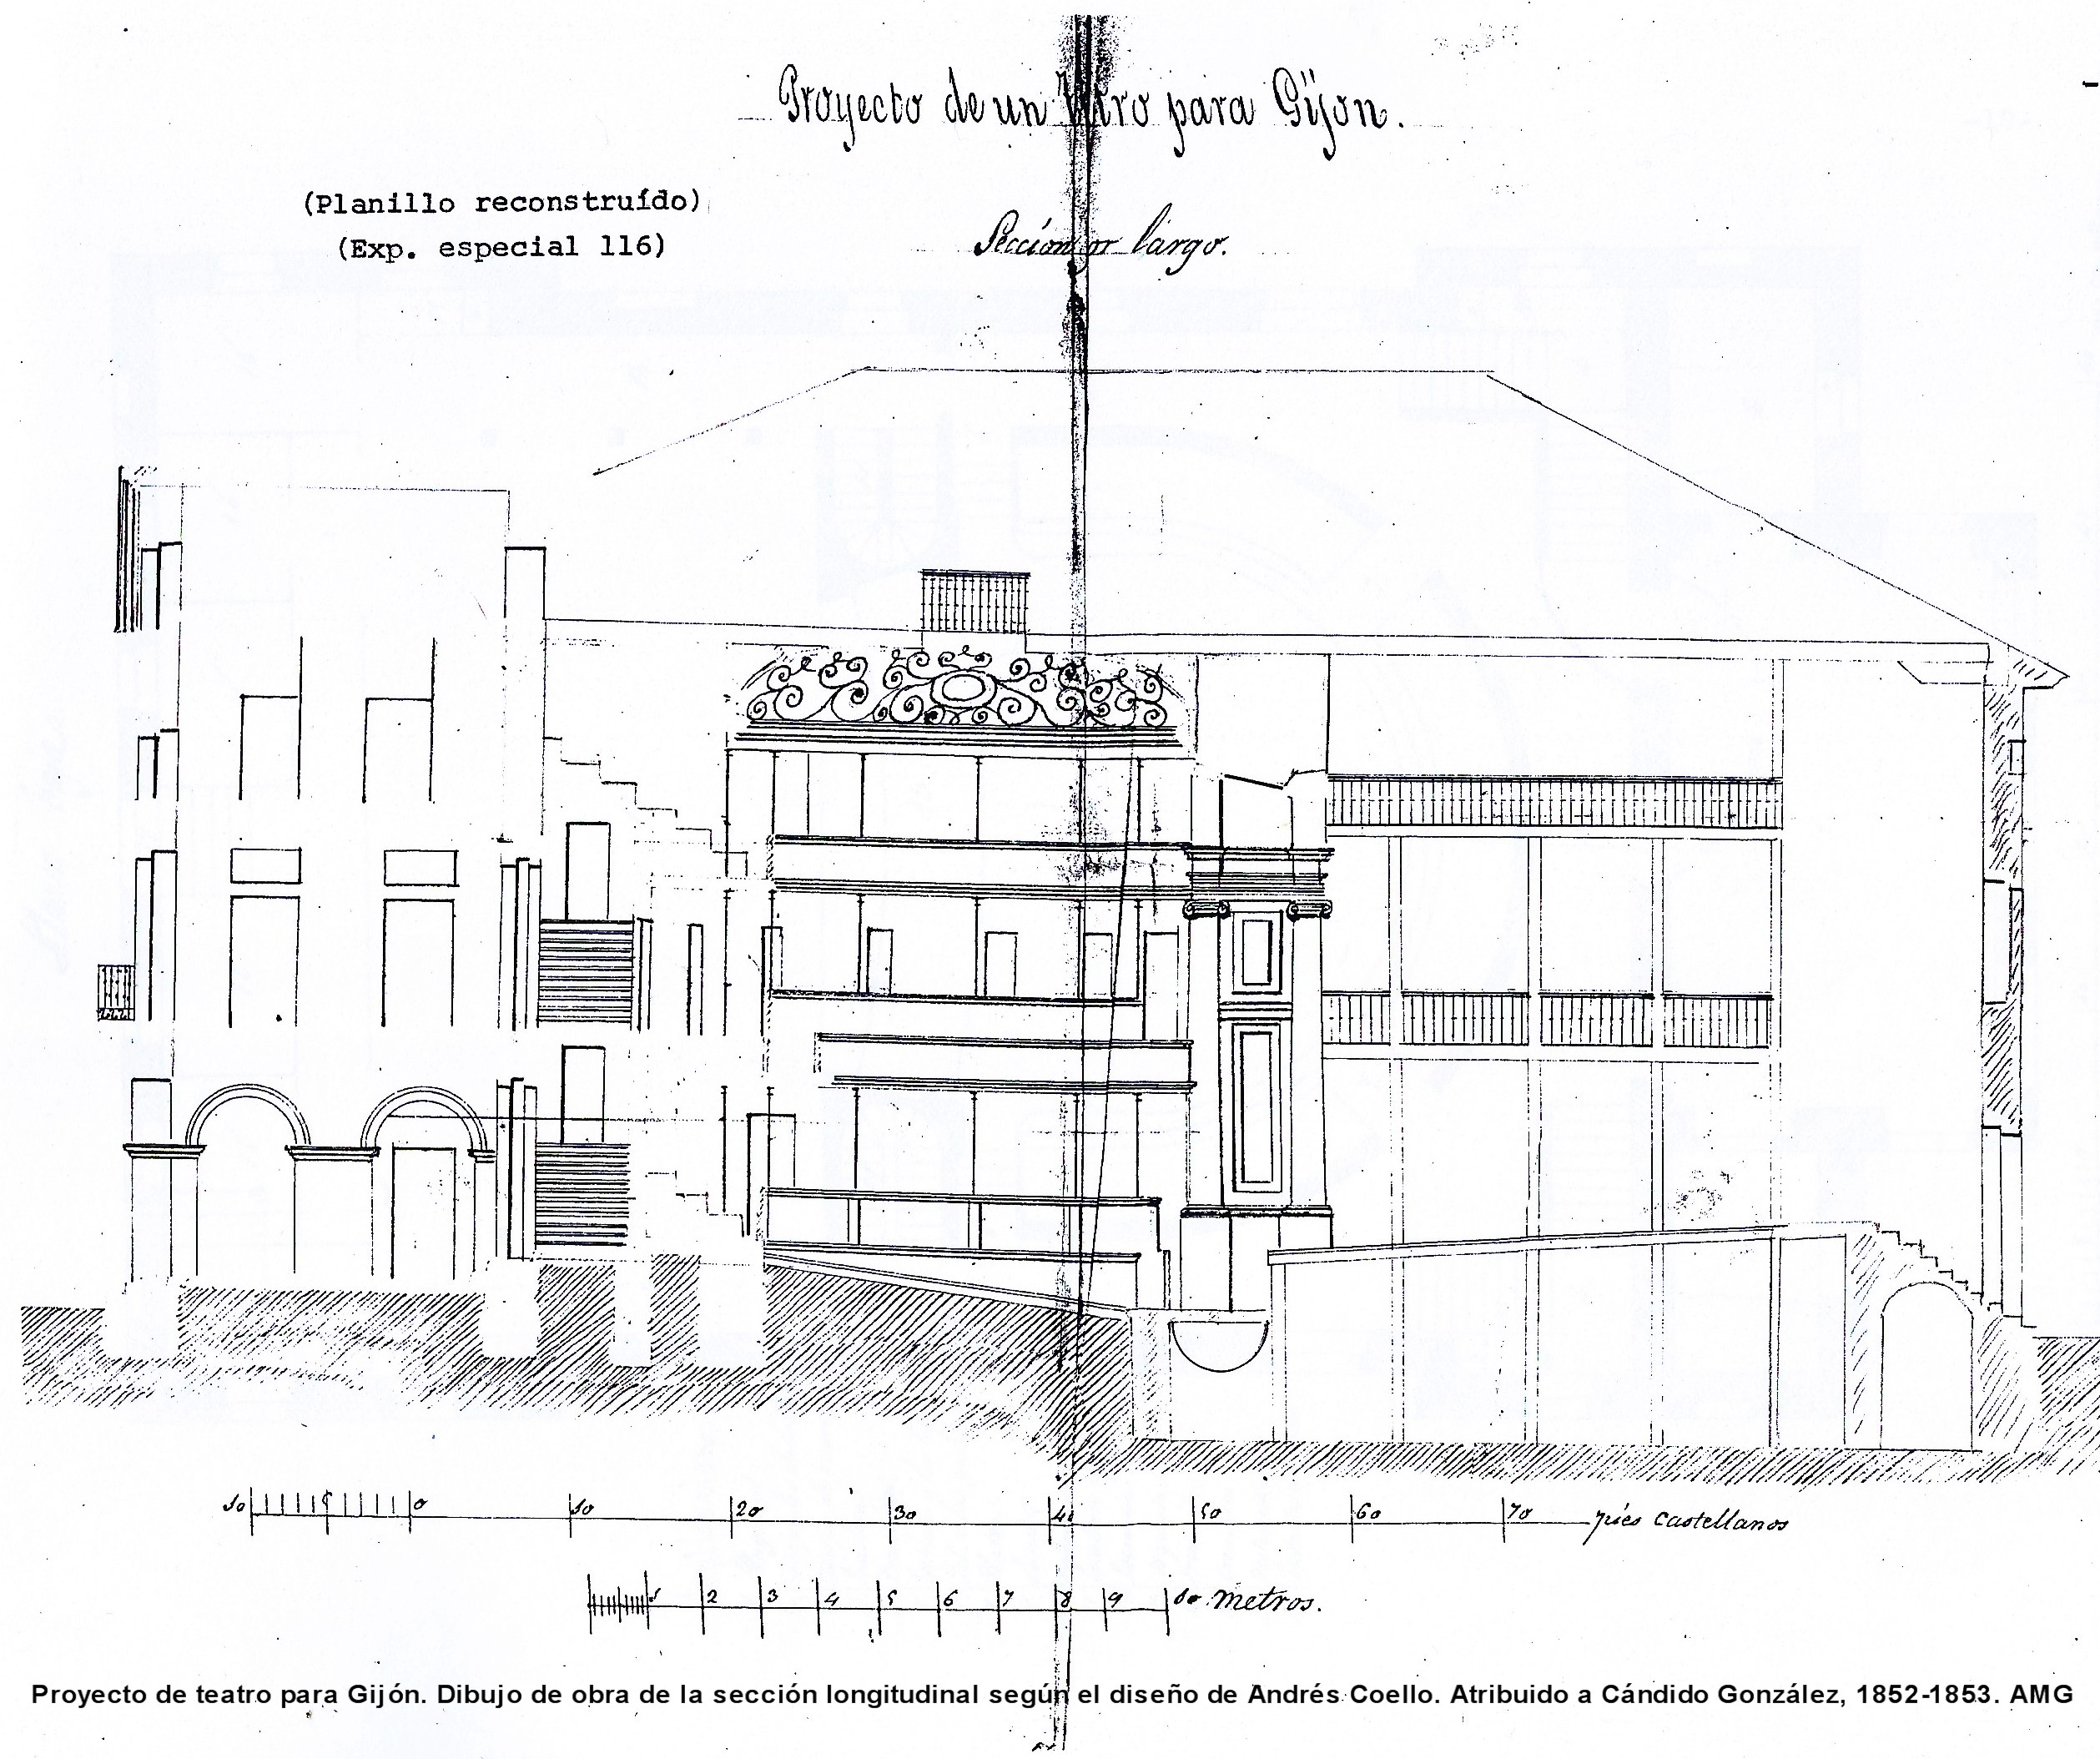 Proyecto de un para Gijon.
(Planillo reconstruído)
(Exp. especial 116)
Seccion largo.
10 5 0 10 20 30 40 50 60 70 pies castellanos
1 2 3 4 5 6 7 8 9 10 metros.
Proyecto de teatro para Gijón. Dibujo de obra de la sección longitudinal según el diseño de Andrés Coello. Atribuido a Cándido González, 1852-1853. AMG